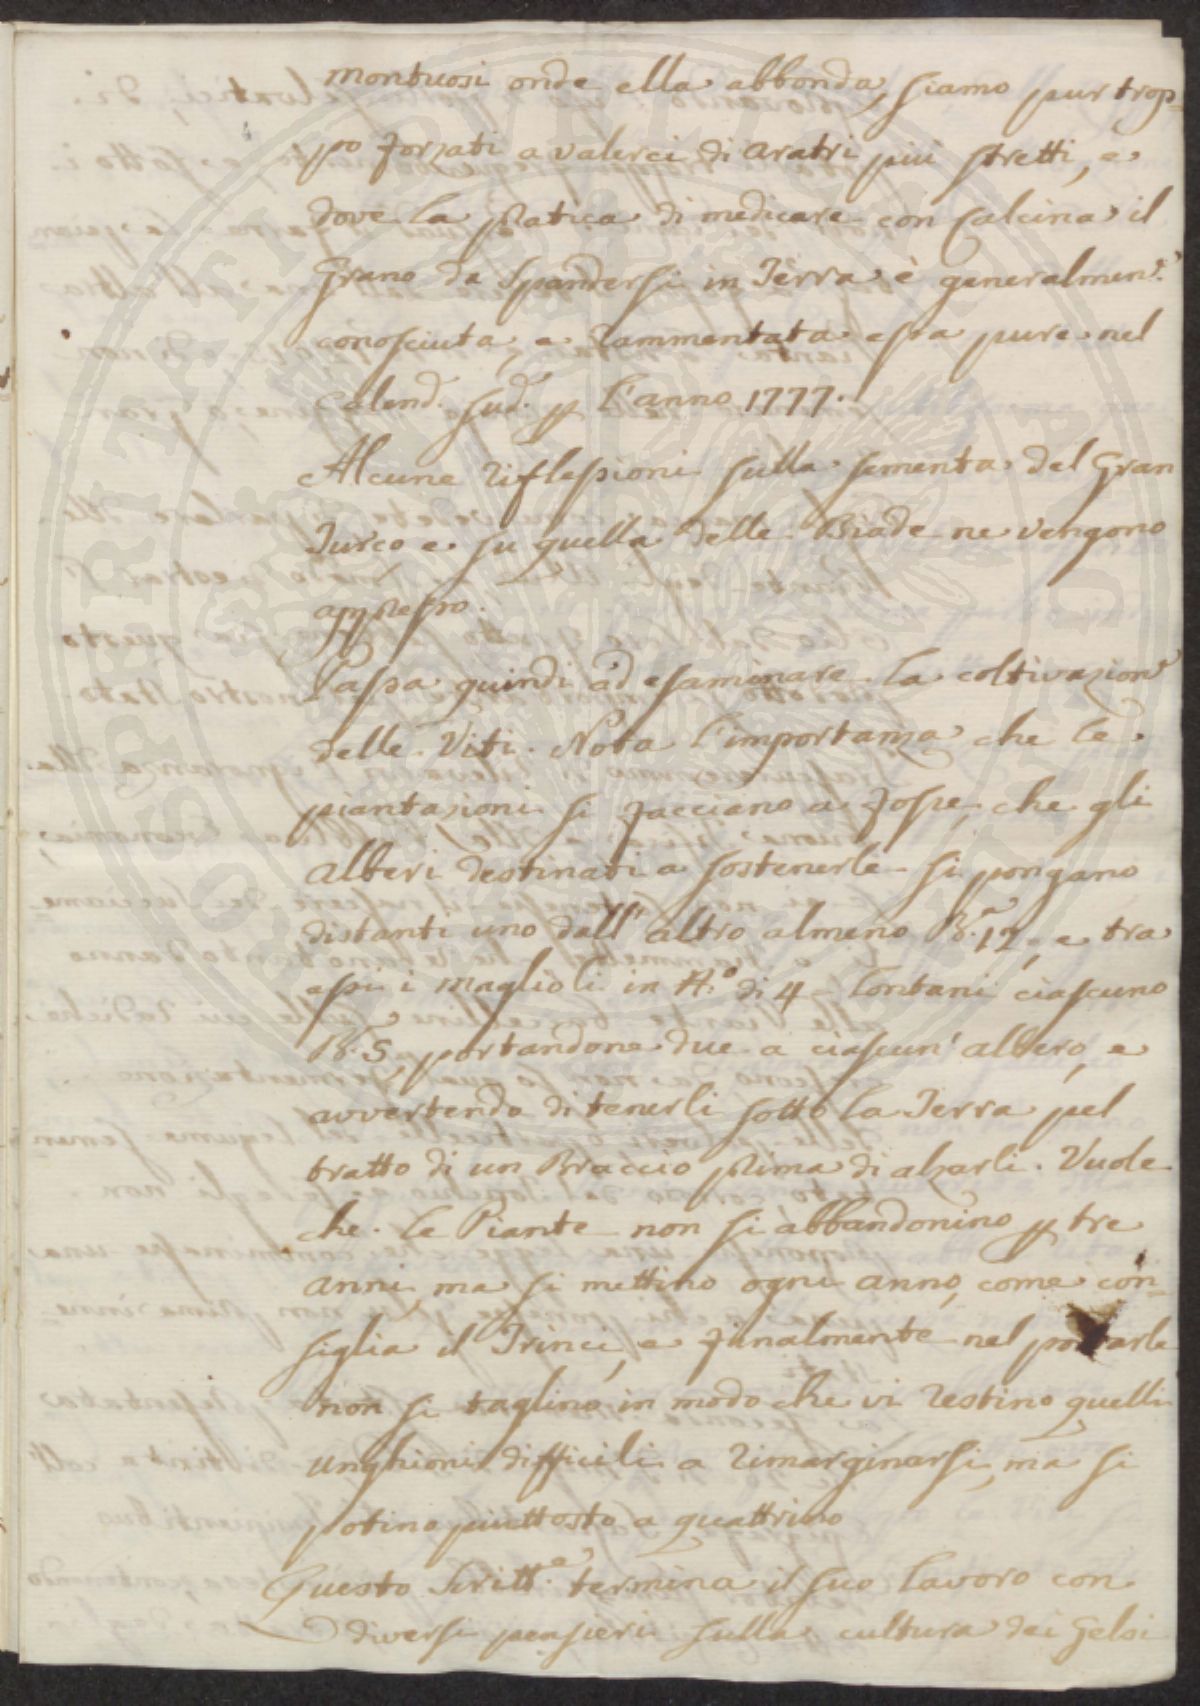 montuosi onde ella abbonda, siamo pur trop=
po forzati a valerci di aratri più stretti, e
dove la pratica di medicare con Calcina il
Grano da spandersi in Terra è generalmen.e
conosciuta, e rammentata essa pure nel
Calend. sud. p l'anno 1777.
Alcune riflessioni sulla sementa del Gran
Turco e su quella delle Biade ne vengono
appresso.
Passa quindi ad esaminare la coltivazion.e
delle Viti. Nota l'importanza che le
piantazioni si facciano a fosse, che gli
Alberi destinati a sostenerle si pongano
distanti uno dall'altro almeno B.a 12, e tra
essi i Maglioli in N.o di 4 lontani ciascuno
B. 5, portandone due a ciascun'albero, e
avvertendo di tenerli sotto la Terra pel
tratto di un Braccio prima di alzarli. Vuole
che le Piante non si abbandonino p tre
anni, ma si mettino ogni anno, come con=
siglia il Trinci, e finalmente nel potarle
non si taglino in modo che vi restino quelli
unghioni difficili a rimarginarsi, ma si
potino piuttosto a quattrino
Questo Scritt.e termina il suo lavoro con
diversi pensieri sulla cultura dei Gelsi